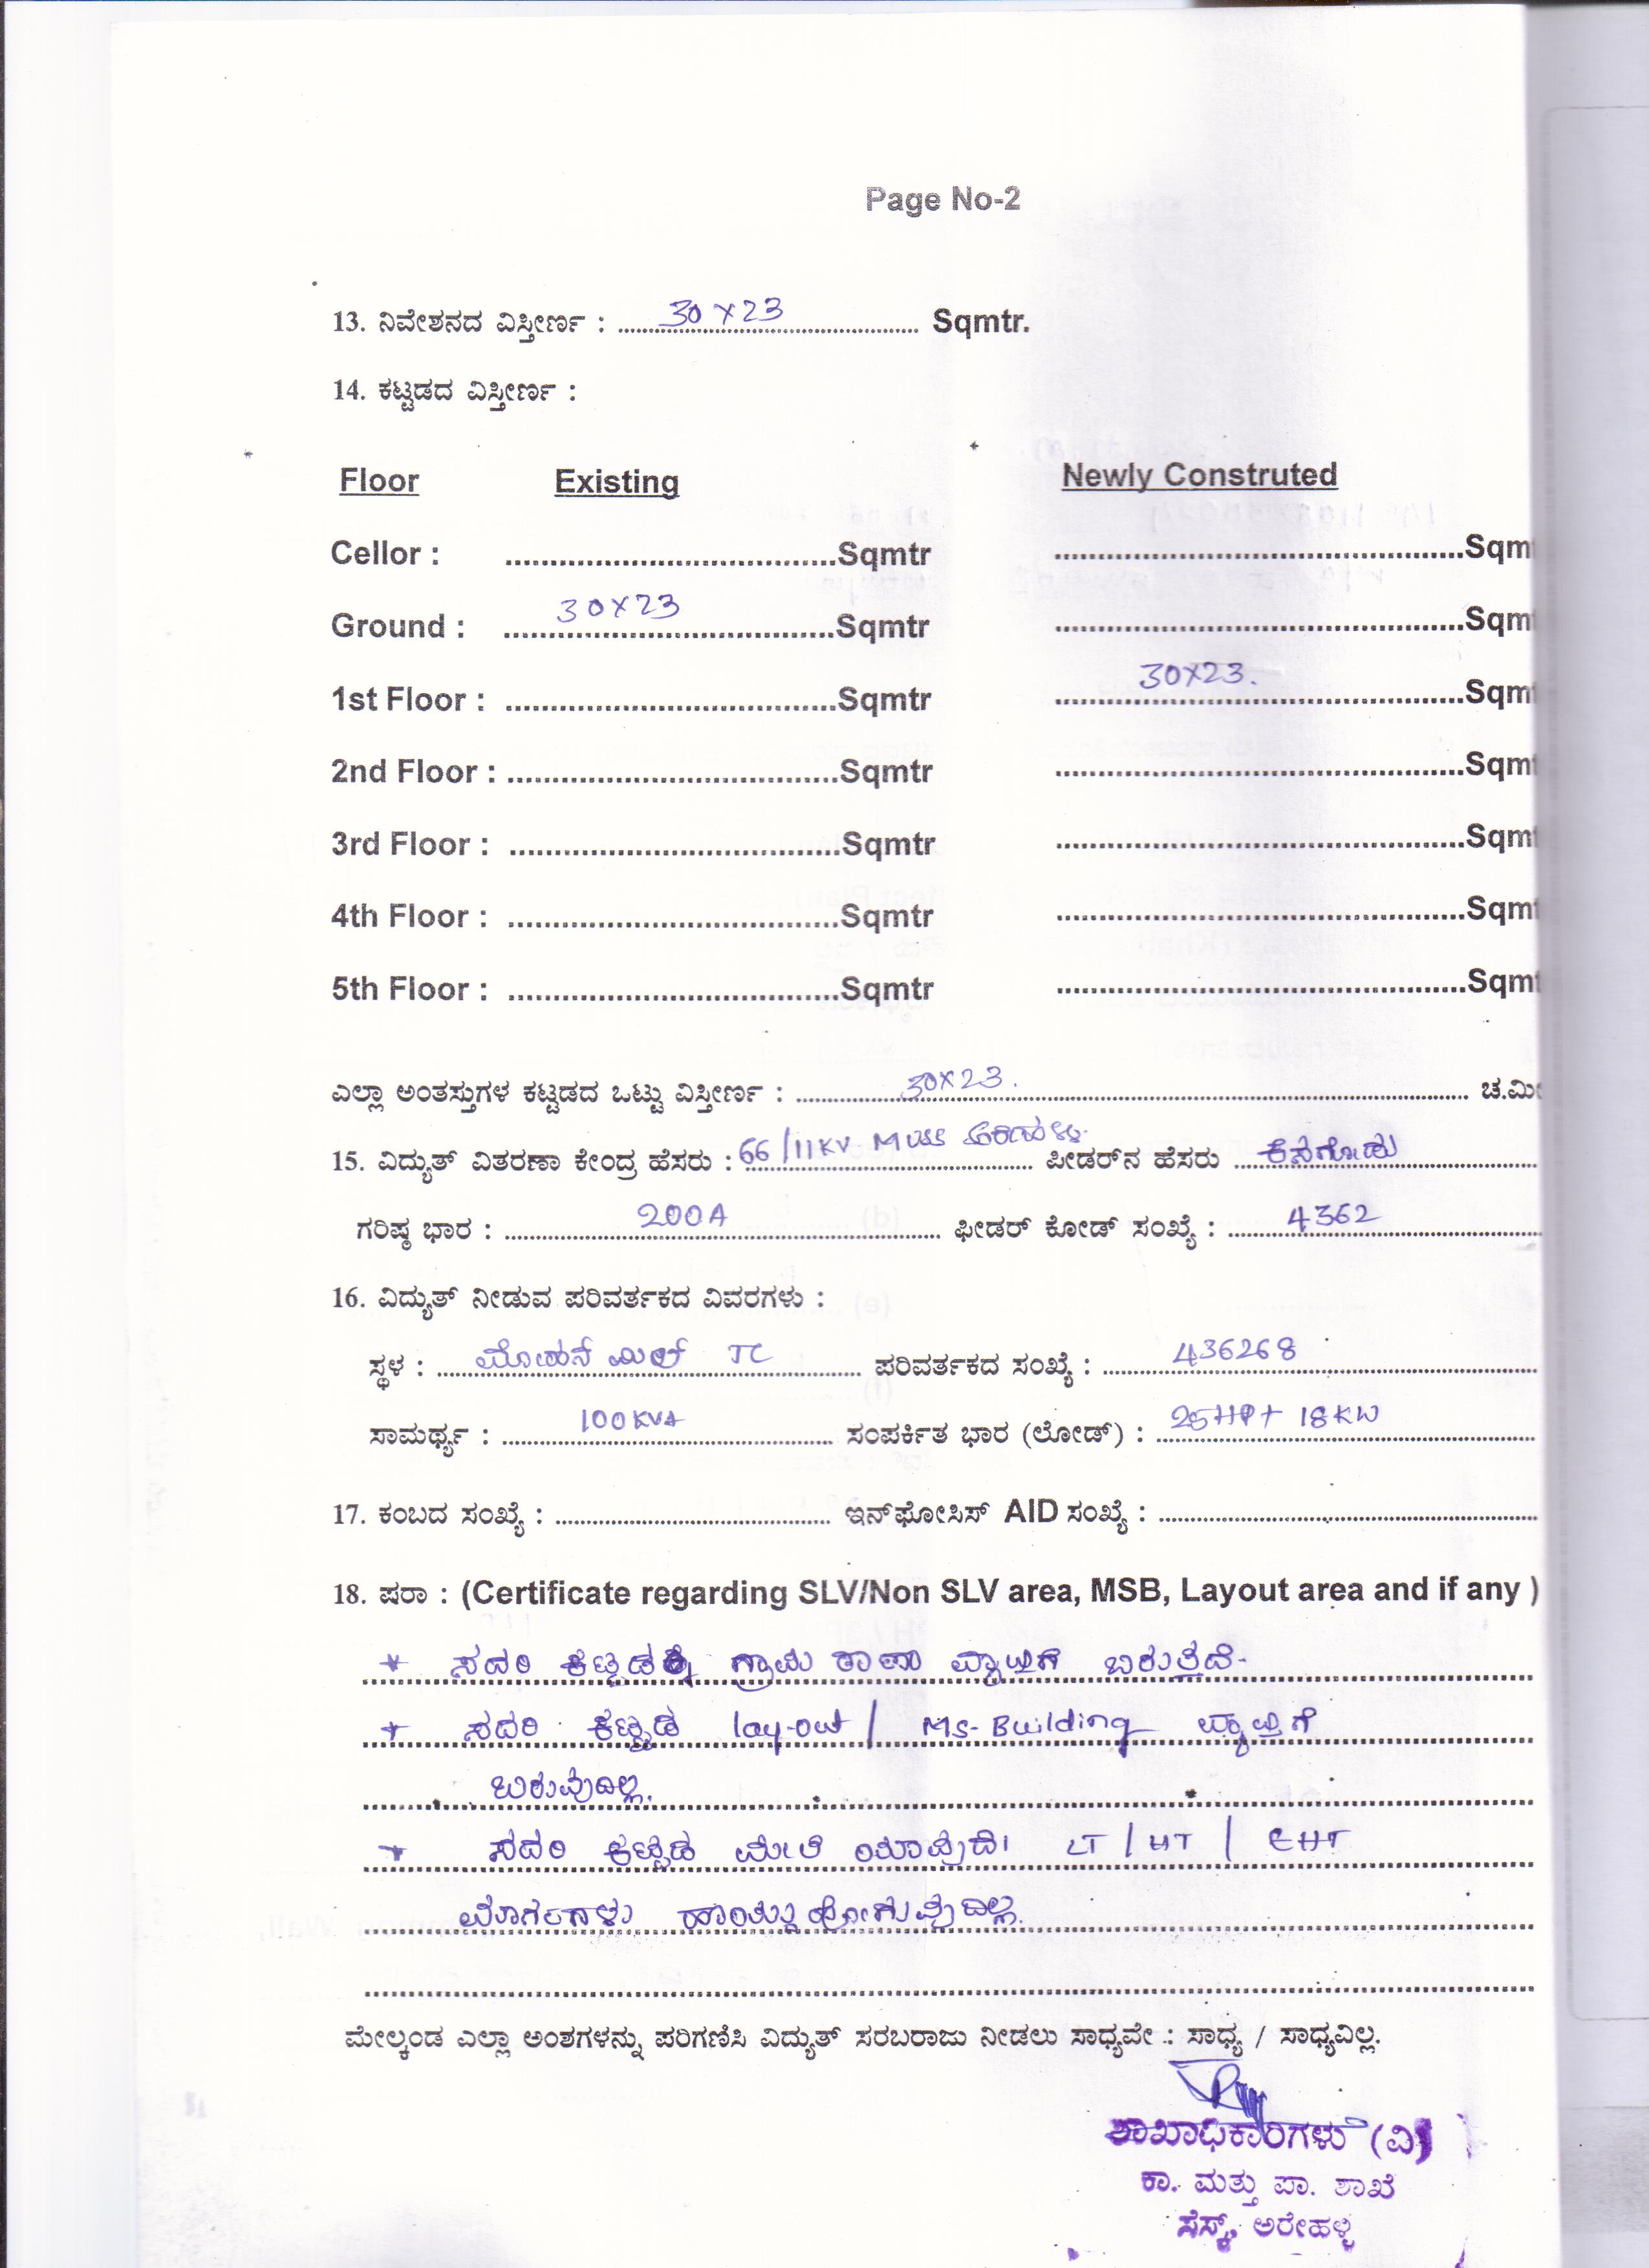 Page No-2
13. ನಿವೇಶನದ ವಿಸ್ತೀರ್ಣ : 30 X 23 Sqmtr.
14. ಕಟ್ಟಡದ ವಿಸ್ತೀರ್ಣ :
Floor Existing Newly Construted
Cellor : Sqmtr Sqmt
Ground : 30X23 Sqmtr Sqmt
1st Floor : Sqmtr 30X23. Sqmt
2nd Floor : Sqmtr Sqmt
3rd Floor : Sqmtr Sqmt
4th Floor : Sqmtr Sqmt
5th Floor : Sqmtr Sqmt
ಎಲ್ಲಾ ಅಂತಸ್ತುಗಳ ಕಟ್ಟಡದ ಒಟ್ಟು ವಿಸ್ತೀರ್ಣ : 30X23. ಚ.ಮೀ
15. ವಿದ್ಯುತ್ ವಿತರಣಾ ಕೇಂದ್ರ ಹೆಸರು : 66/11KV MUSS ಪೀಡರ್‌ನ ಹೆಸರು ಕೆಸಗೋಡು
ಗರಿಷ್ಠ ಭಾರ : 200A ಫೀಡರ್ ಕೋಡ್ ಸಂಖ್ಯೆ : 4362
16. ವಿದ್ಯುತ್ ನೀಡುವ ಪರಿವರ್ತಕದ ವಿವರಗಳು :
ಸ್ಥಳ : ಮೋಹನ್ ಮಿಲ್ TC ಪರಿವರ್ತಕದ ಸಂಖ್ಯೆ : 436268
ಸಾಮರ್ಥ್ಯ : 100KVA ಸಂಪರ್ಕಿತ ಭಾರ (ಲೋಡ್) : 25HP+ 18KW
17. ಕಂಬದ ಸಂಖ್ಯೆ : ಇನ್‌ಫೋಸಿಸ್ AID ಸಂಖ್ಯೆ :
18. ಷರಾ : (Certificate regarding SLV/Non SLV area, MSB, Layout area and if any )
* ಸದರಿ ಗ್ರಾಮ ಠಾಣಾ ವ್ಯಾಪ್ತಿಗೆ ಬರುತ್ತದೆ.
* ಸದರಿ ಕಟ್ಟಡ lay-out / Ms-Building ವ್ಯಾಪ್ತಿಗೆ
ಬರುವುದಿಲ್ಲ.
* ಸದರಿ ಕಟ್ಟಡ ಮೇಲೆ ಯಾವುದೇ LT / HT / EHT
ಮಾರ್ಗಗಳು ಹಾಯ್ದುಹೋಗುವುದಿಲ್ಲ.
ಮೇಲ್ಕಂಡ ಎಲ್ಲಾ ಅಂಶಗಳನ್ನು ಪರಿಗಣಿಸಿ ವಿದ್ಯುತ್ ಸರಬರಾಜು ನೀಡಲು ಸಾಧ್ಯವೇ : ಸಾಧ್ಯ / ಸಾಧ್ಯವಿಲ್ಲ.
ಶಾಖಾಧಿಕಾರಿಗಳು (ವಿ)
ಕಾ. ಮತ್ತು ಪಾ. ಶಾಖೆ
ಸೆಸ್ಕ್, ಅರೇಹಳ್ಳಿ